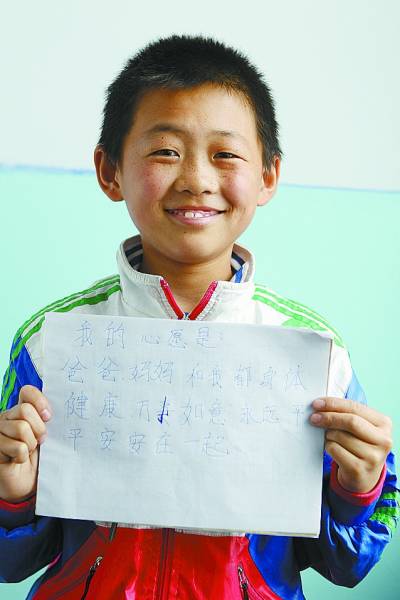 我的心愿是:
爸爸妈妈和我都身体
健康万事如意永远平
平安安在一起